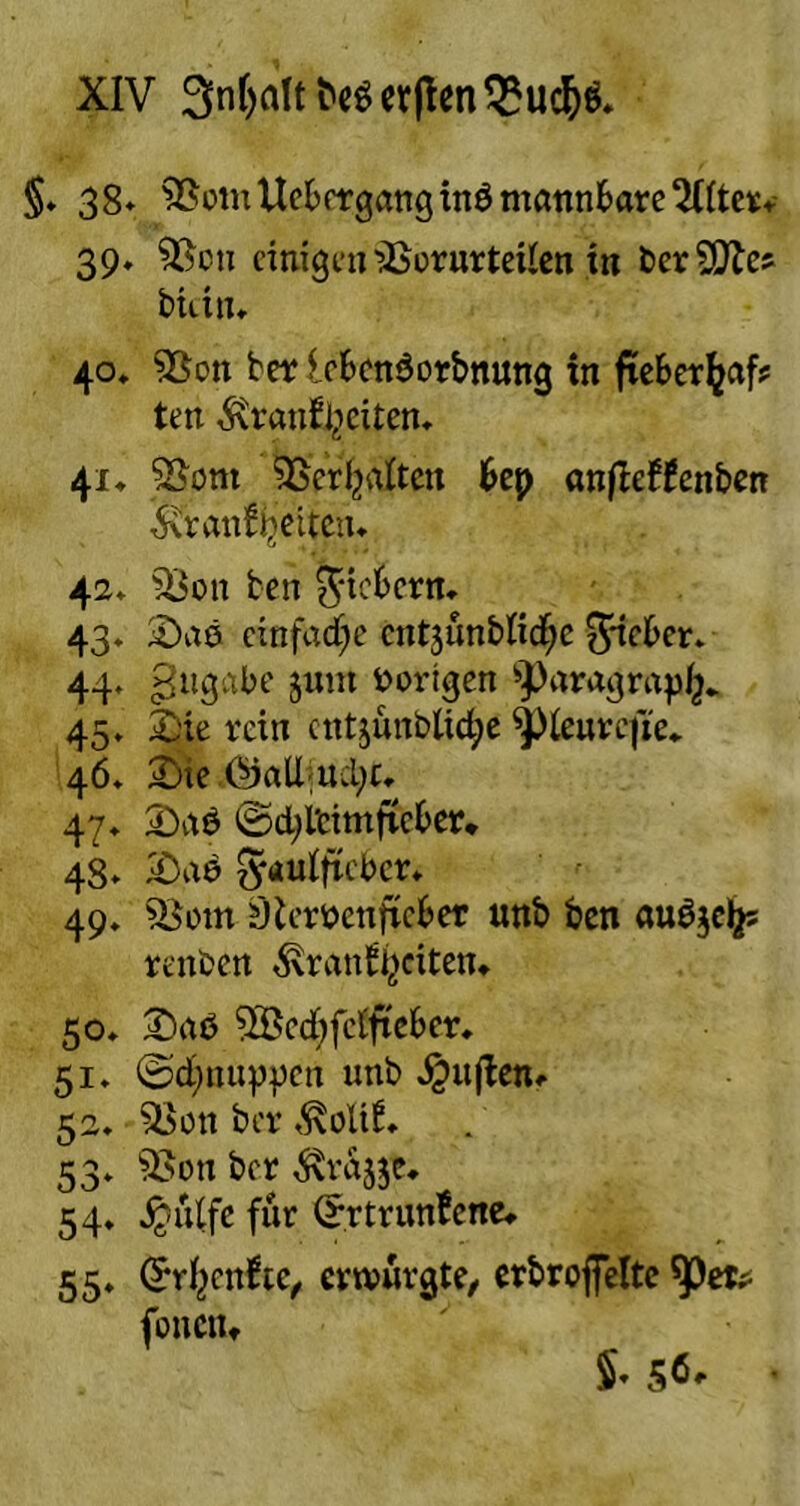 XIV Inhalt des ersten Buchs.
§. 38. Vom Uebergang ins mannbare Alter.
39. Von einigen Vorurteilen in der Me-
dizin.
40. Von der Lebensordnung in fieberhaf-
ten Krankheiten.
41. Vom Verhalten bey anstekkenden
Krankheiten.
42. Von den Fiebern.
43. Das einfache entzündliche Fieber.
44. Zugabe zum vorigen Paragraph.
45. Die rein entzündliche Pleuresie.
46. Die Gallsucht.
47. Das Schleimfieber.
48. Das Faulfieber.
49. Vom Nervenfieber und den auszeh-
renden Krankheiten.
50. Das Wechselfieber.
51. Schnuppen und Husten.
52. Von der Kolik.
53. Von der Kräzze.
54. Hülfe für Ertrunkene.
55. Erhenkte, erwürgte, erdrosselte Per-
sonen.
§. 56.